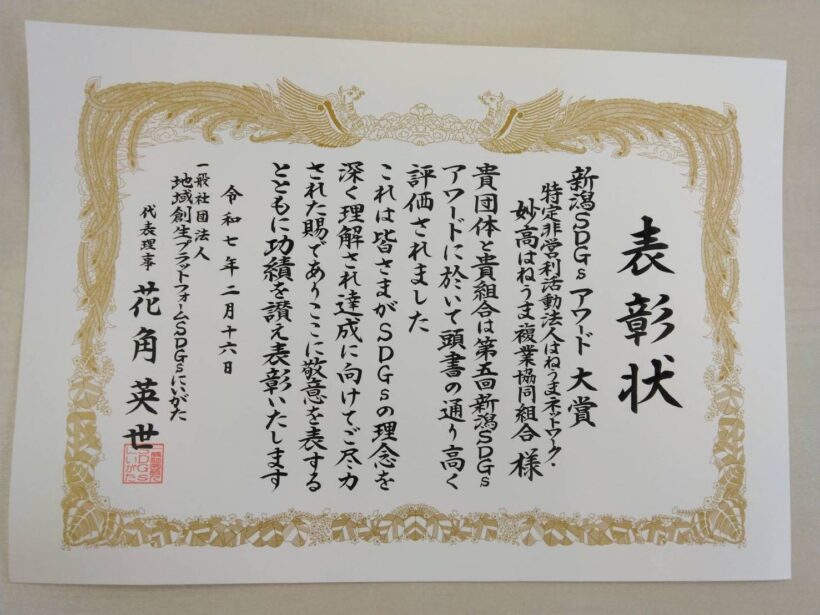 表彰状
新潟SDGsアワード 大賞
特定非営利活動法人はねうまネットワーク・
妙高はねうま複業協同組合 様
貴団体と貴組合は第五回新潟SDGs
アワードに於いて頭書の通り高く
評価されました
これは皆さまがSDGsの理念を
深く理解され達成に向けてご尽力
された賜でありここに敬意を表する
とともに功績を讃え表彰いたします
令和七年二月十六日
一般社団法人
地域創生プラットフォームSDGsにいがた
代表理事 花角英世